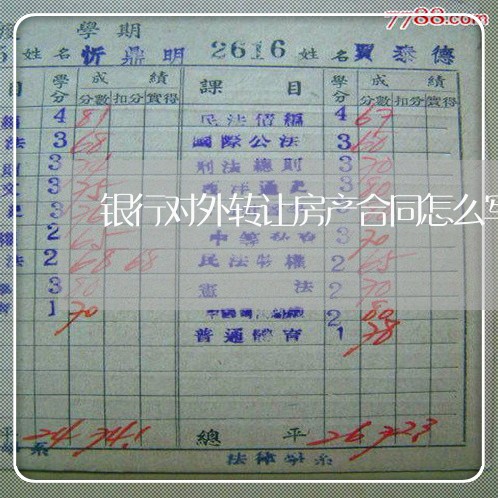 7788.com
學期
姓名 忻鼎明 2616 姓名 賈泰德
目 學分 成績 分數 扣分 實得 課目 學分 成績 分數 扣分 實得
4 81 民法債編 4 67
法 3 68 國際公法 3 60
3 刑法總則 3 70
3 75 西洋通史 3
銀行对外转让房产合同怎么写
2 中等 3 70
法 2 68 68 民法物權 2 65
3 80 憲法 2 70
1 70 2 80
普通體育 1 78
平 24 74.1 總平 26 72.3
系 法律學系